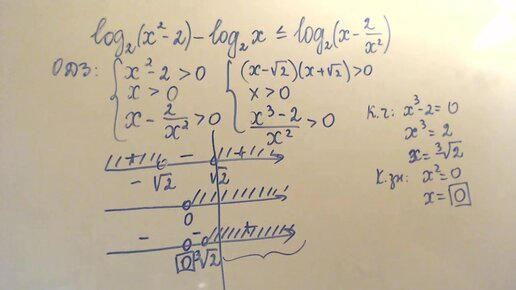 log₂(x²-2) - log₂x ≤ log₂(x - 2/x²)
ОДЗ: { x²-2 > 0 { (x-√2)(x+√2) > 0
x > 0 x > 0
x - 2/x² > 0 (x³-2)/x² > 0
К.ч: x³-2 = 0
x³ = 2
x = ³√2
К.зн: x² = 0
x = 0
+ - +
-√2 √2
0
- - +
0 ³√2